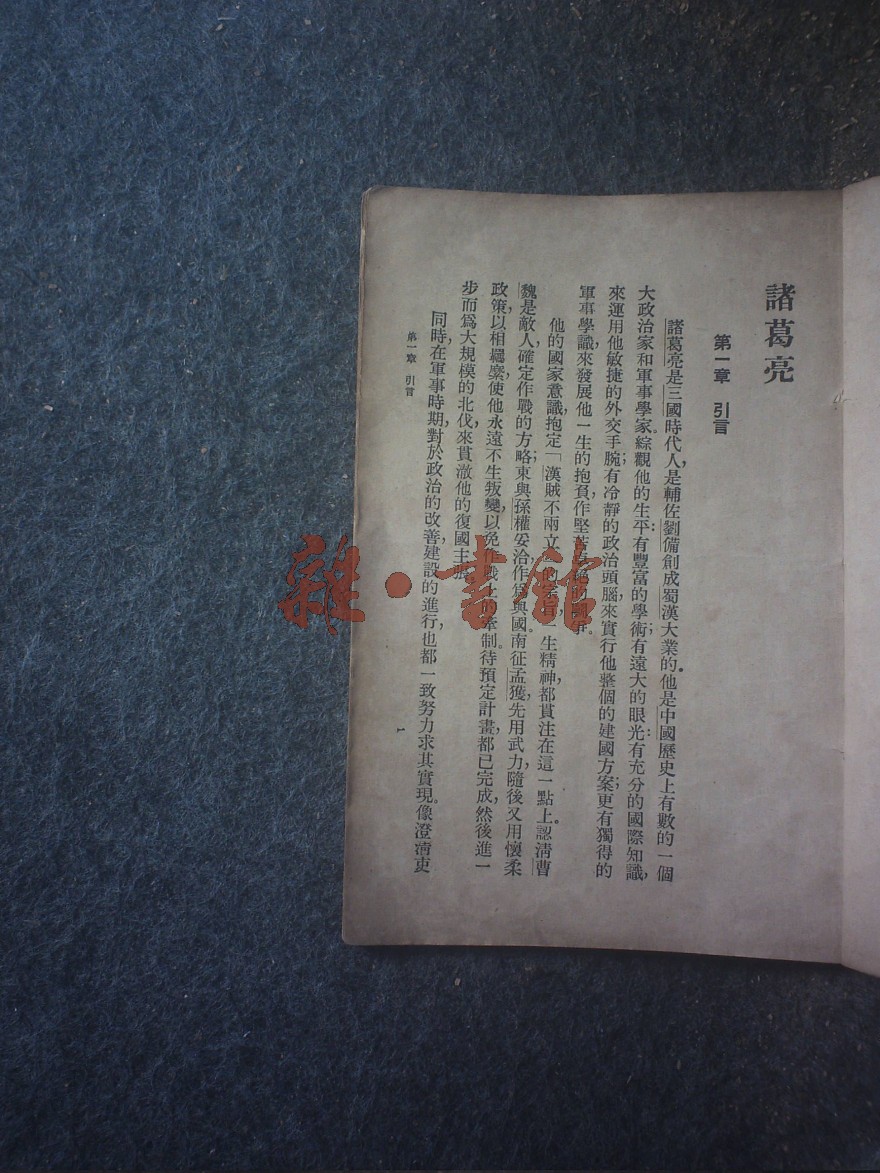 諸葛亮
第一章 引言
諸葛亮是三國時代人,是輔佐劉備創成蜀漢大業的。他是中國歷史上有數的一個
大政治家和軍事學家。綜觀他的生平:有豐富的學術;有遠大的眼光;有充分的國際知識,
來運用他敏捷的外交手腕;有冷靜的政治頭腦,來實行他整個的建國方案;更有獨得的
軍事學識,來發展他一生的抱負,作堅苦
他的國家意識,抱定「漢賊不兩立 生精神,都貫注在這一點上。認清曹
魏是敵人,確定作戰的方略;東與孫權妥洽,作爲與國。南征孟獲,先用武力,隨後又用懷柔
政策,以相羈縻,使他永遠不生叛變,以免作戰上的牽制。待預定計畫,都已完成,然後進一
步而爲大規模的北伐,來貫澈他的復國主張。
同時,在軍事時期,對於政治的改善建設的進行,也都一致努力求其實現。像澄清吏
第一章 引言
一
雜·書館